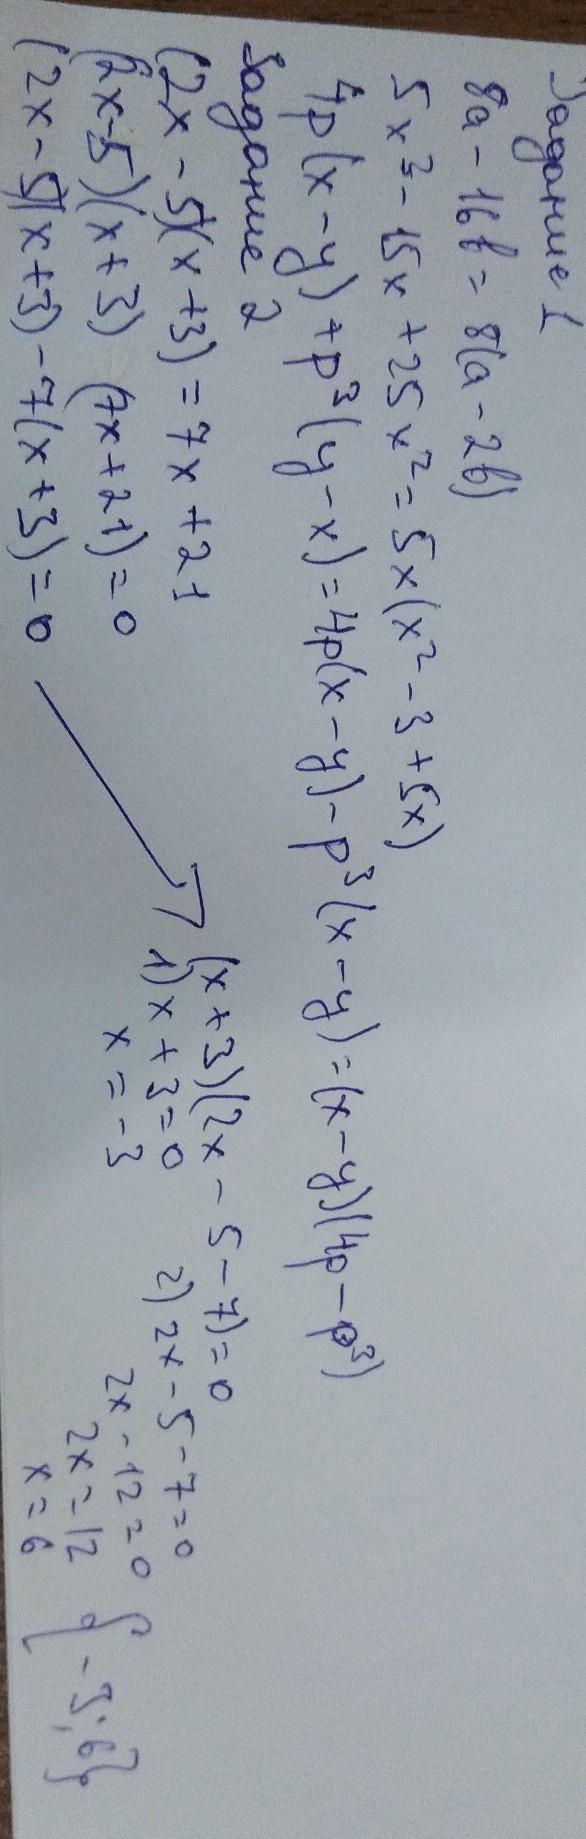 Задание 1
8a - 16b = 8(a - 2b)
5x³ - 15x + 25x² = 5x(x² - 3 + 5x)
4p(x - y) + p³(y - x) = 4p(x - y) - p³(x - y) = (x - y)(4p - p³)
Задание 2
(2x - 5)(x + 3) = 7x + 21
(2x - 5)(x + 3) (7x + 21) = 0
(2x - 5)(x + 3) - 7(x + 3) = 0
(x + 3)(2x - 5 - 7) = 0
1) x + 3 = 0
x = -3
2) 2x - 5 - 7 = 0
2x - 12 = 0
2x = 12
x = 6
{-3; 6}